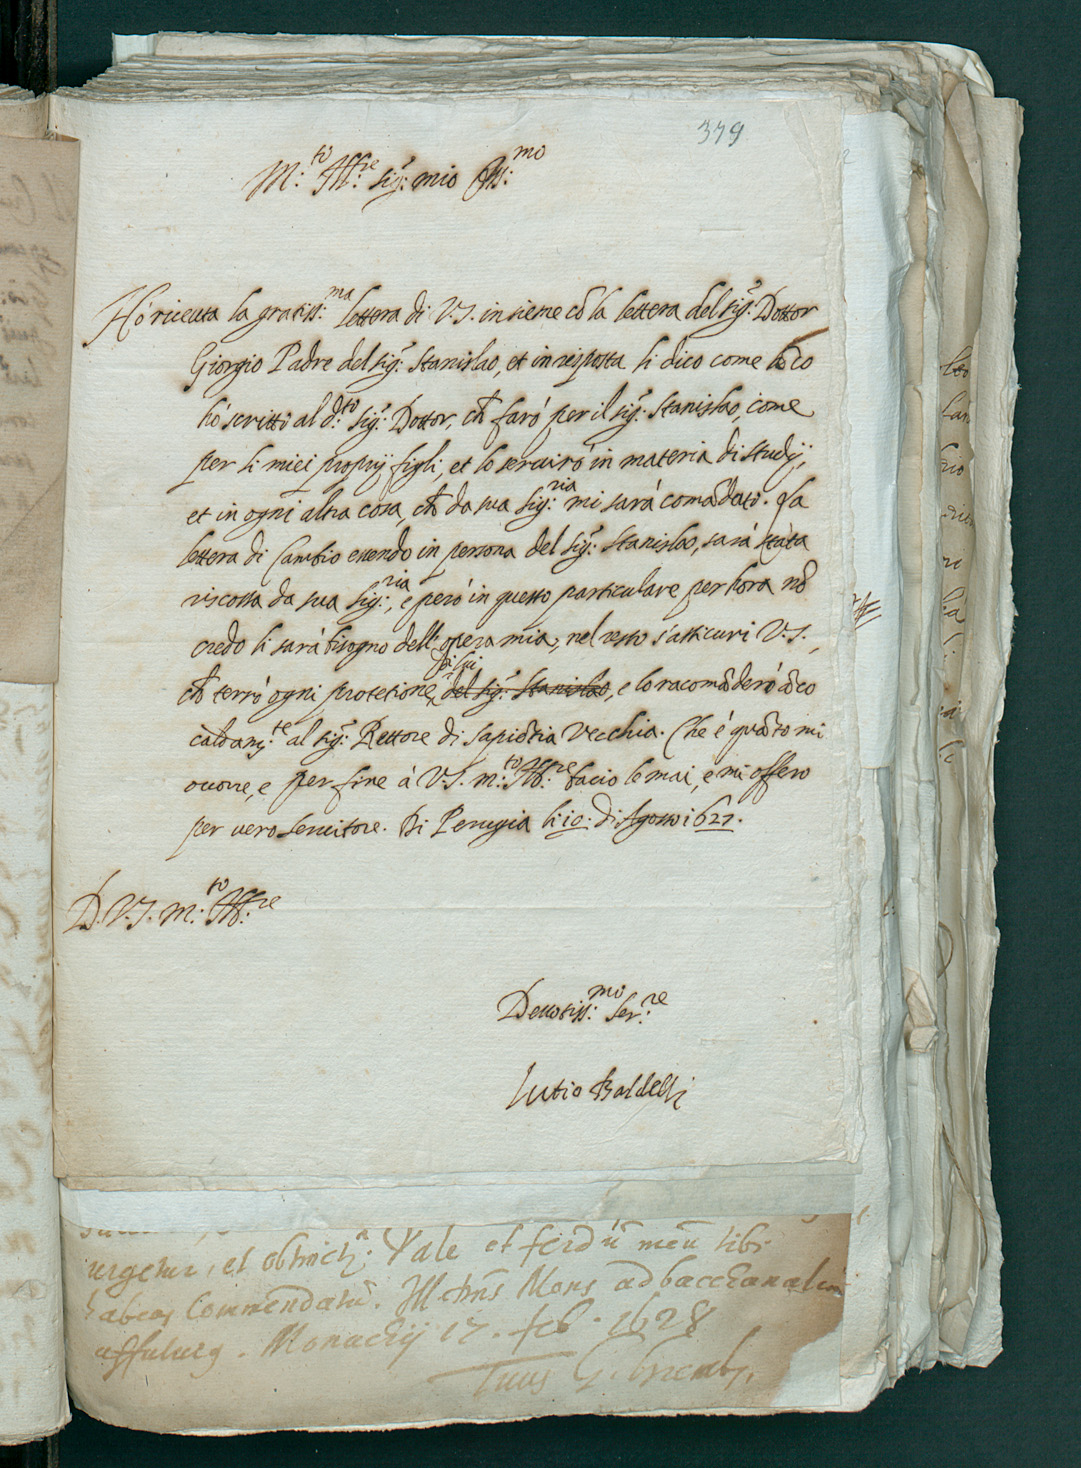 379
M:to Ill:re sig:r mio Oss:mo
Hò riceuta la gratiss:ma lettera di V.S. insieme cõ la lettera del sig:r Dottor
Giorgio Padre del sig:r Stanislao, et in risposta li dico come ãco
hò scritto al d:to sig:r Dottor, ch̃ farò per il sig:r Stanislao, come
per li miei proprij figli, et lo seruirò in materia di studij,
et in ogni altra cosa, ch̃ da sua sig:ria mi sarà comãdato. La
lettera di Cambio essendo in persona del sig:r Stanislao, sarà stata
riscossa da sua sig:ria, e però in questo particulare per hora nõ
credo li sarà bisogno dell'opera mia, nel resto s'assicuri V.S.,
di lui
ch̃ terrò ogni protetione del sig:r Stanislao, e lo racomãderò ãco
caldam:te al sig:r Rettore di Sapiẽtia Vecchia. Che è quãto mi
occorre, e per fine à V.S. m:to Ill:re bacio le mai, e mi offero
per vero seruitore. Di Perugia li 10: di Agosto 1627.
D. V.S. m:to Ill:re
Deuotiss:mo Ser:re
Lutio Baldelli
urgetur, et obstrict; Vale et ferdũ meũ tibi
habeas Commendatũ. Mons ad bacchanalia
. Monachij 17. feb. 1628
Tuus G.